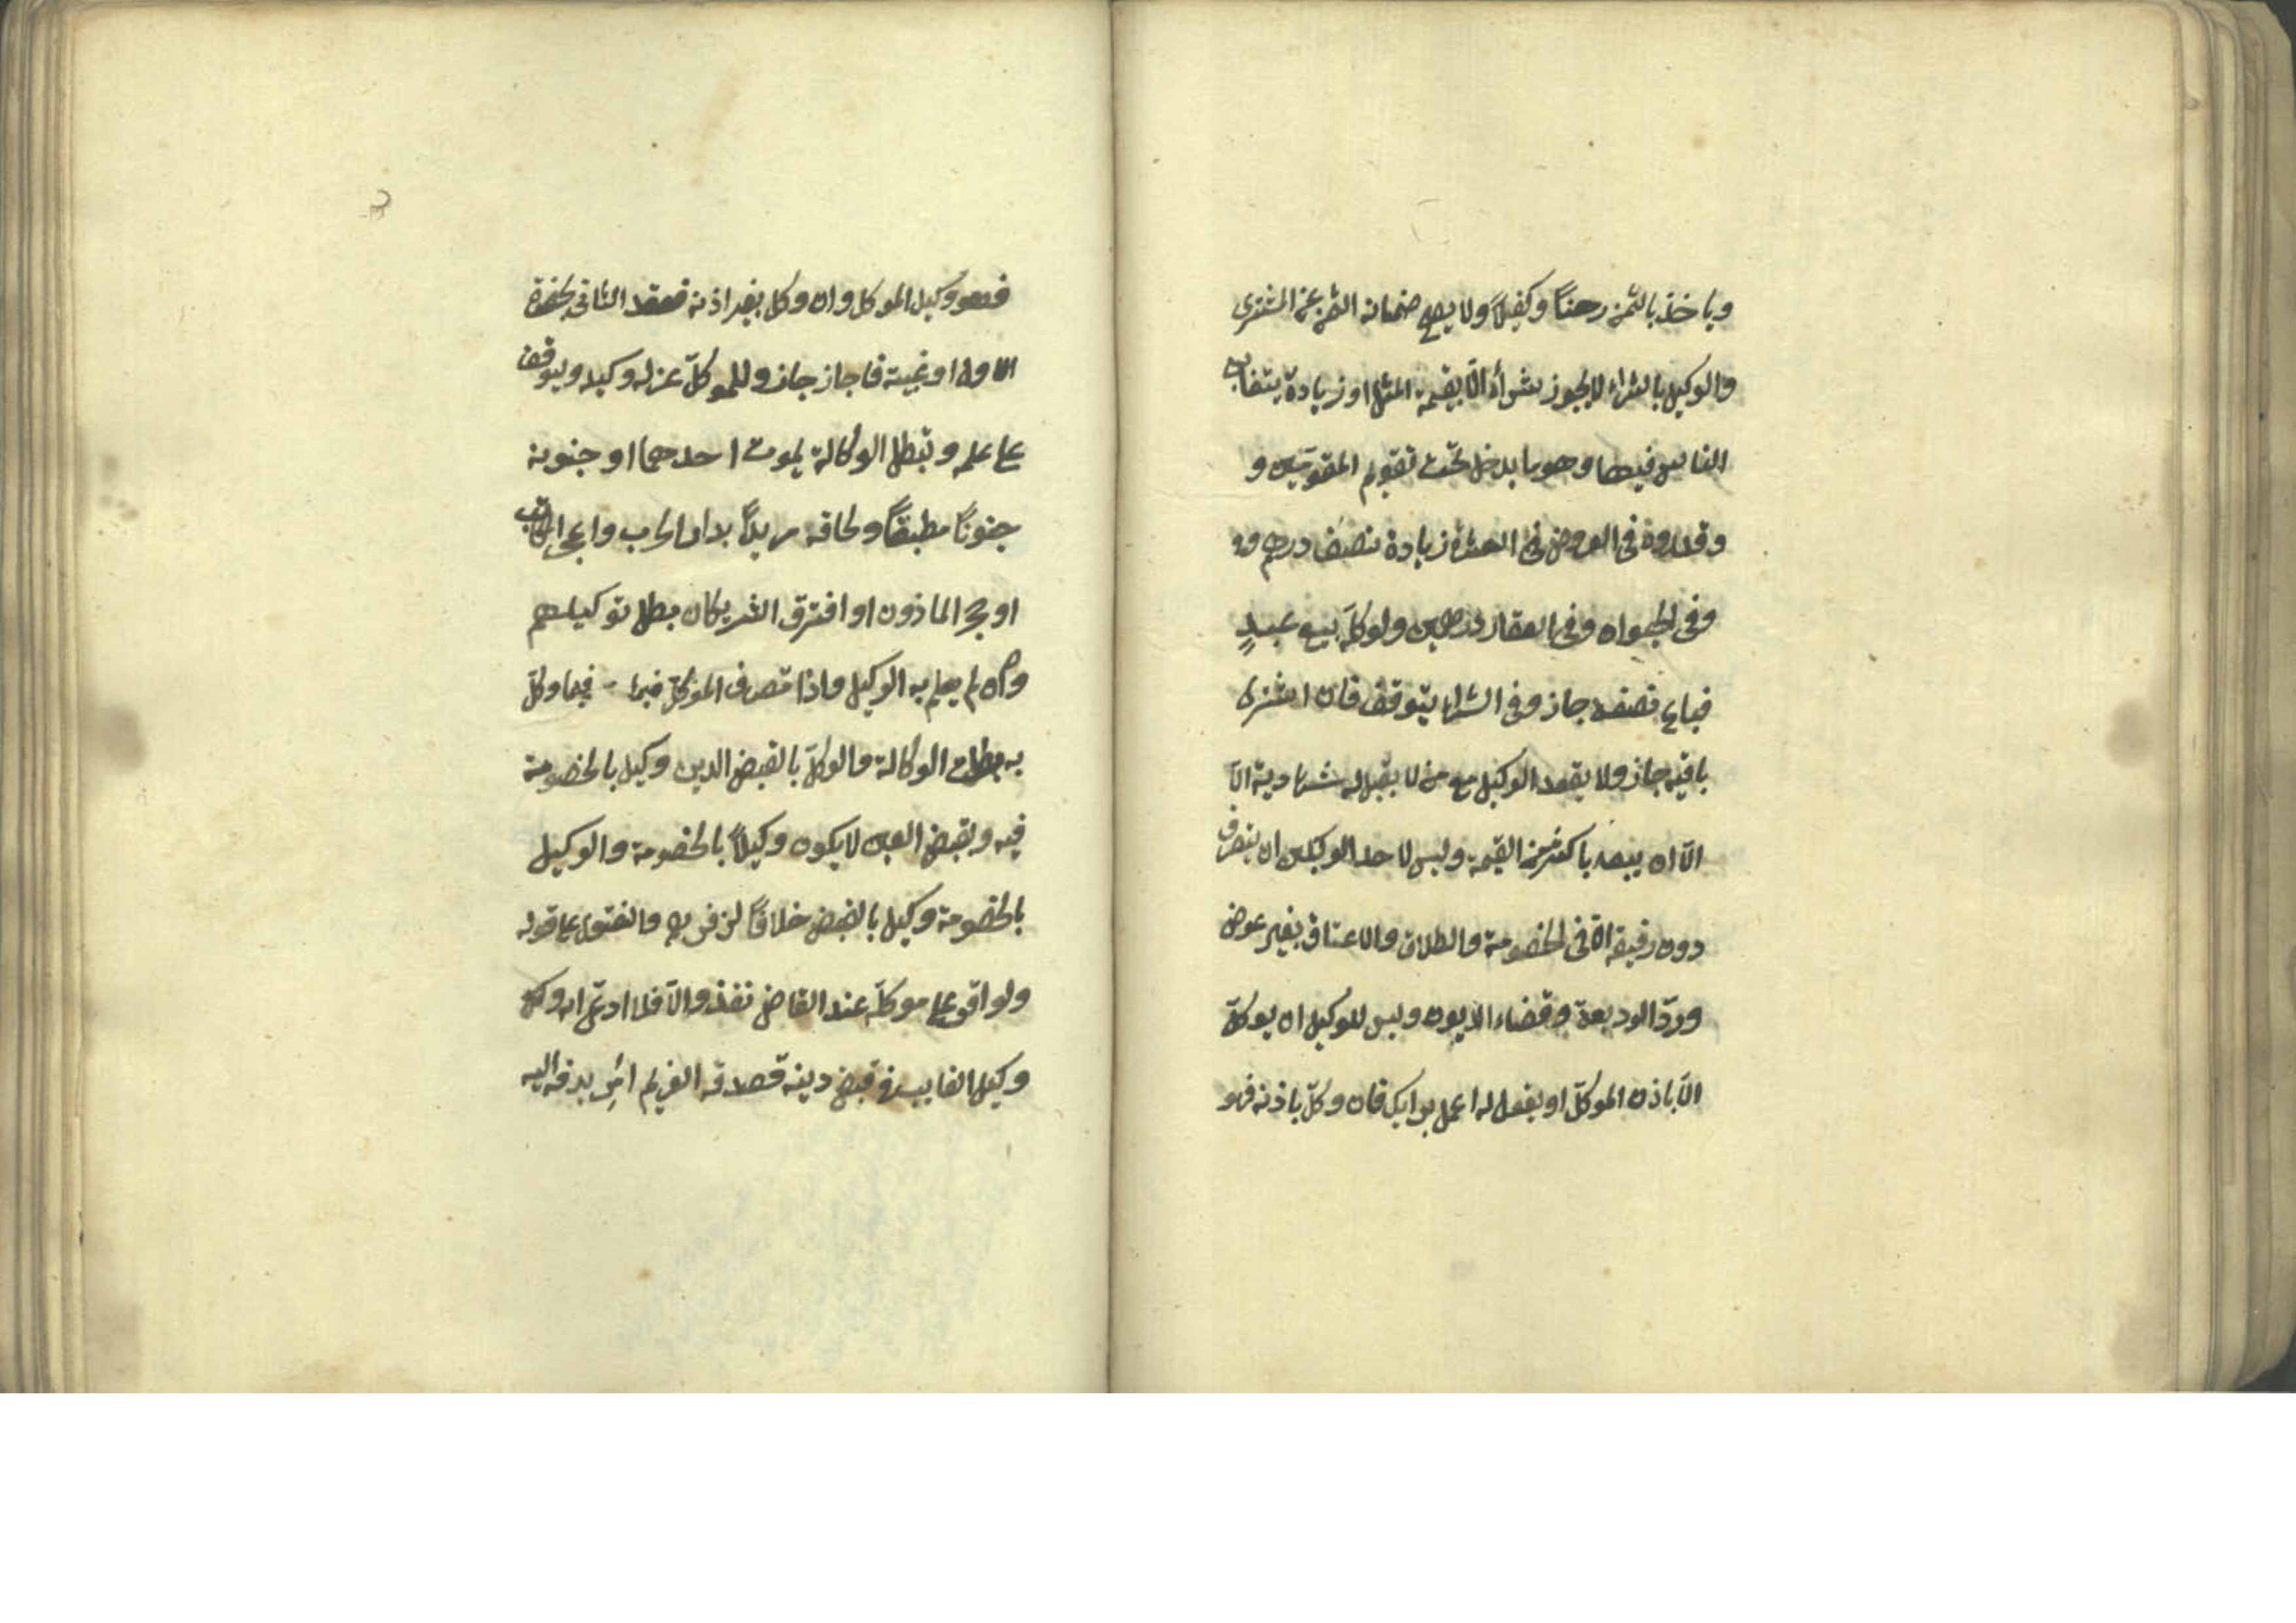 وياخذ بالثمن رهناً وكفيلاً ولا يصح ضمانه الثمن عن المشترى
والوكيل بالشراء لا يجوز شراؤه الّا بقيمة المثل او زيادة يتغابن
الغابن فيها وهو ما يدخل تحت تقويم المقومّين و
وقدروه فى العروض فى العشرة زيادة نصف درهم وو
وفى الحيوان وفى العقار درهمين ولو وكلّه ببيع عبدٍ
فباع نصفه جاز وفى الشراء يتوقف فان اشترى
باقيه جاز ولا يعقد الوكيل مع من لا يقبل له شهادته الّا
الّا ان يبيعه باكثر من القيمة وليس لاحد الوكيلين ان يتصرف
دون رفيقه الّا فى الخصومة والطلاق والاعتاق بغير عوض
وردّ الوديعة وقضاء الديون وليس للوكيل ان يوكلّ
الّا باذن الموكلّ او بقول له اعمل برايك فان وكلّ باذنه فهو
فهو وكيل الموكل وان وكل بغير اذنه فعقد الثانى بحضرة
الاول او غيبته فاجاز جاز وللموكلّ عزل وكيله ويتوقف
على علمه وتبطل الوكالة بموت احدهما او جنونه
جنوناً مطبقاً ولحاقه مرتداً بدار الحرب واذا عجز المكاتب
او حجر الماذون او افترق الشريكان بطل توكيلهم
وان لم يعلم به الوكيل واذا تصرف الموكلّ فيما وكلّ
به بطلت الوكالة والوكلّ بالقبض الدين وكيل بالخصومة
فيه وبقبض العين لا يكون وكيلاً بالخصومة والوكيل
بالخصومة وكيل بالقبض خلافاً لزفر والفتوى على قوله
ولو اقرّ على موكلّه عند القاضى نفذ والّا فلا ادعّى انه وكيل
وكيل الغايب فى قبض دينه فصدقه الغريم امر بدفعه اليه